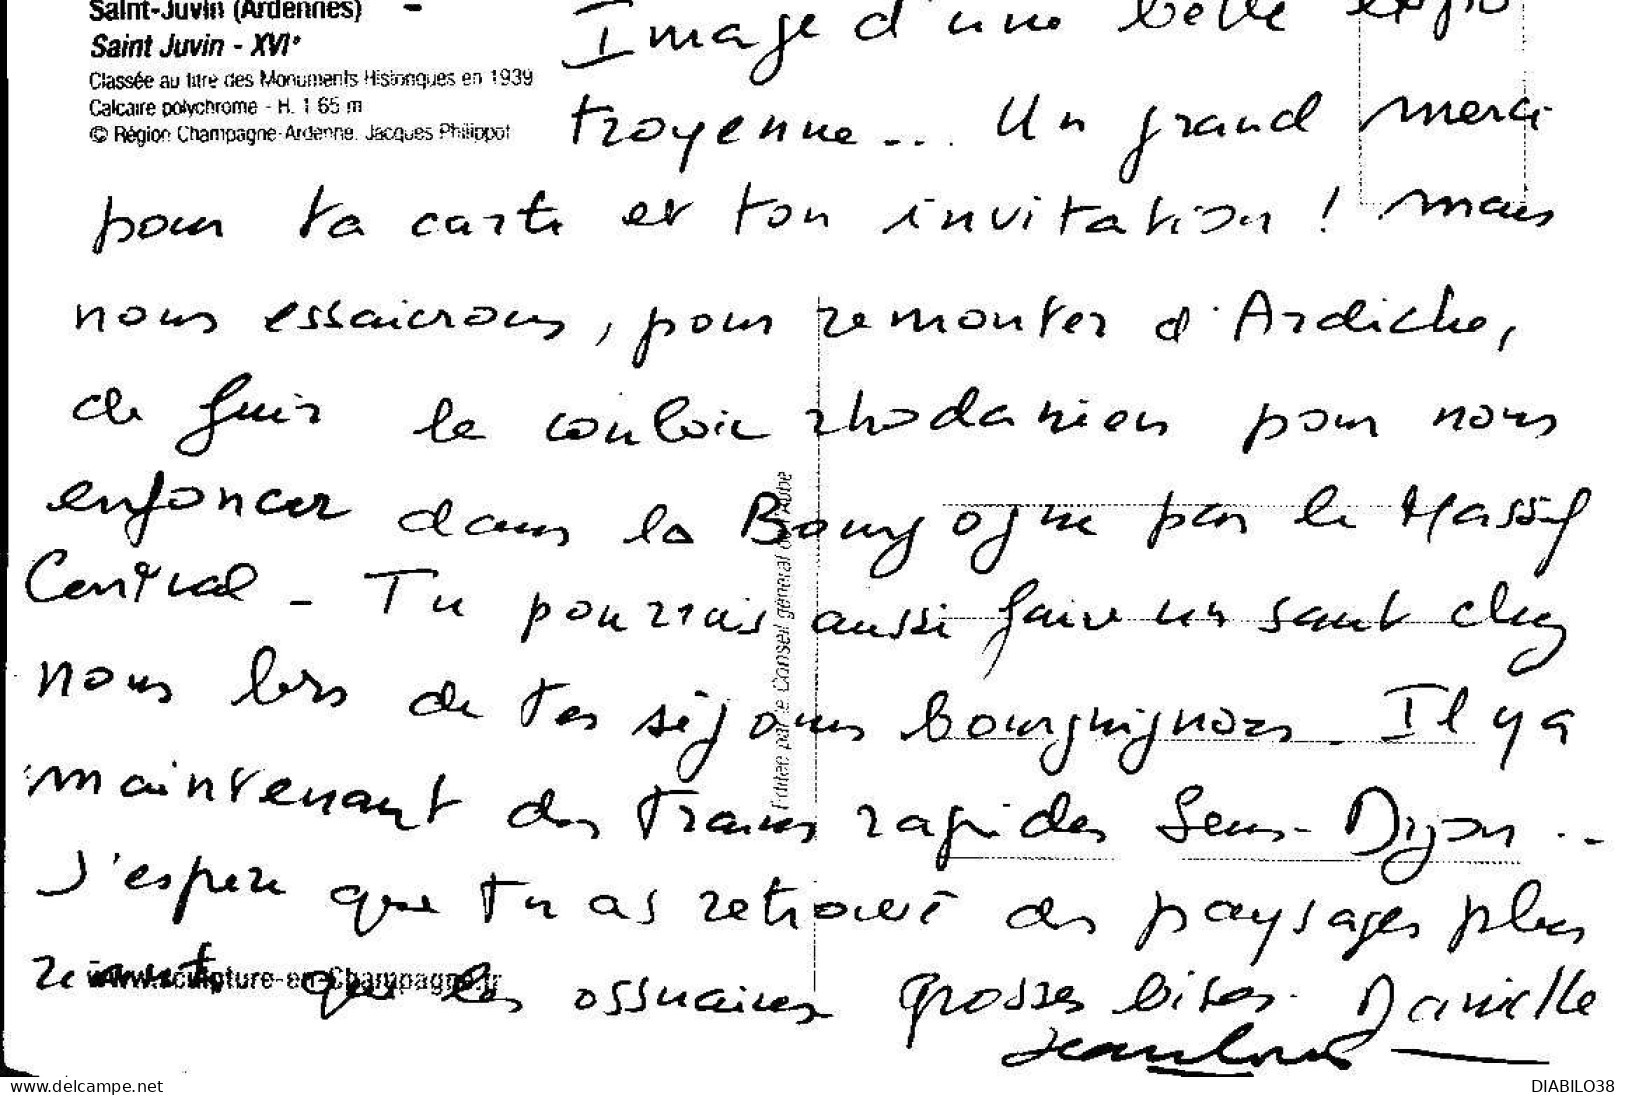 Saint-Juvin (Ardennes)
Saint Juvin - XVIe
Classée au titre des Monuments Historiques en 1939
Calcaire polychrome - H. 1 65 m
© Région Champagne-Ardenne. Jacques Philippot
Image d'une belle expo
troyenne... Un grand merci
pour ta carte et ton invitation ! mais
nous essaierons, pour remonter d'Ardèche,
de fuir le couloir rhodanien pour nous
enfoncer dans la Bourgogne par le Massif
Central - Tu pourrais aussi faire un saut chez
nous lors de tes séjours bourguignons. Il y a
maintenant des trains rapides Sens-Dijon...
J'espère que tu as retrouvé des paysages plus
riants que les ossuaires Grosses bises. Danielle
Jean Louis
Editée par le Conseil général de l'Aube
www.sculpture-en-Champagne.fr
www.delcampe.net
DIABILO38